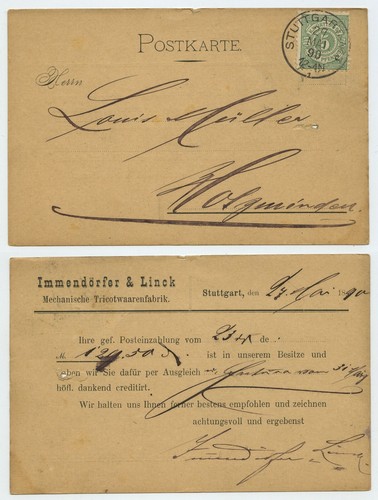 POSTKARTE.
STUTTGART
27
MAI
90
12-1N
5
Herrn
Louis Müller
Holzminden.
Immendörfer & Linck
Mechanische Tricotwaarenfabrik.
Stuttgart, den 27. Mai 1890
Ihre gef. Posteinzahlung vom 23 ds.
M. 129.50 ist in unserem Besitze und
haben wir Sie dafür per Ausgleich Factura vom 31 März
höfl. dankend creditirt.
Wir halten uns Ihnen ferner bestens empfohlen und zeichnen
achtungsvoll und ergebenst
Immendörfer & Linck